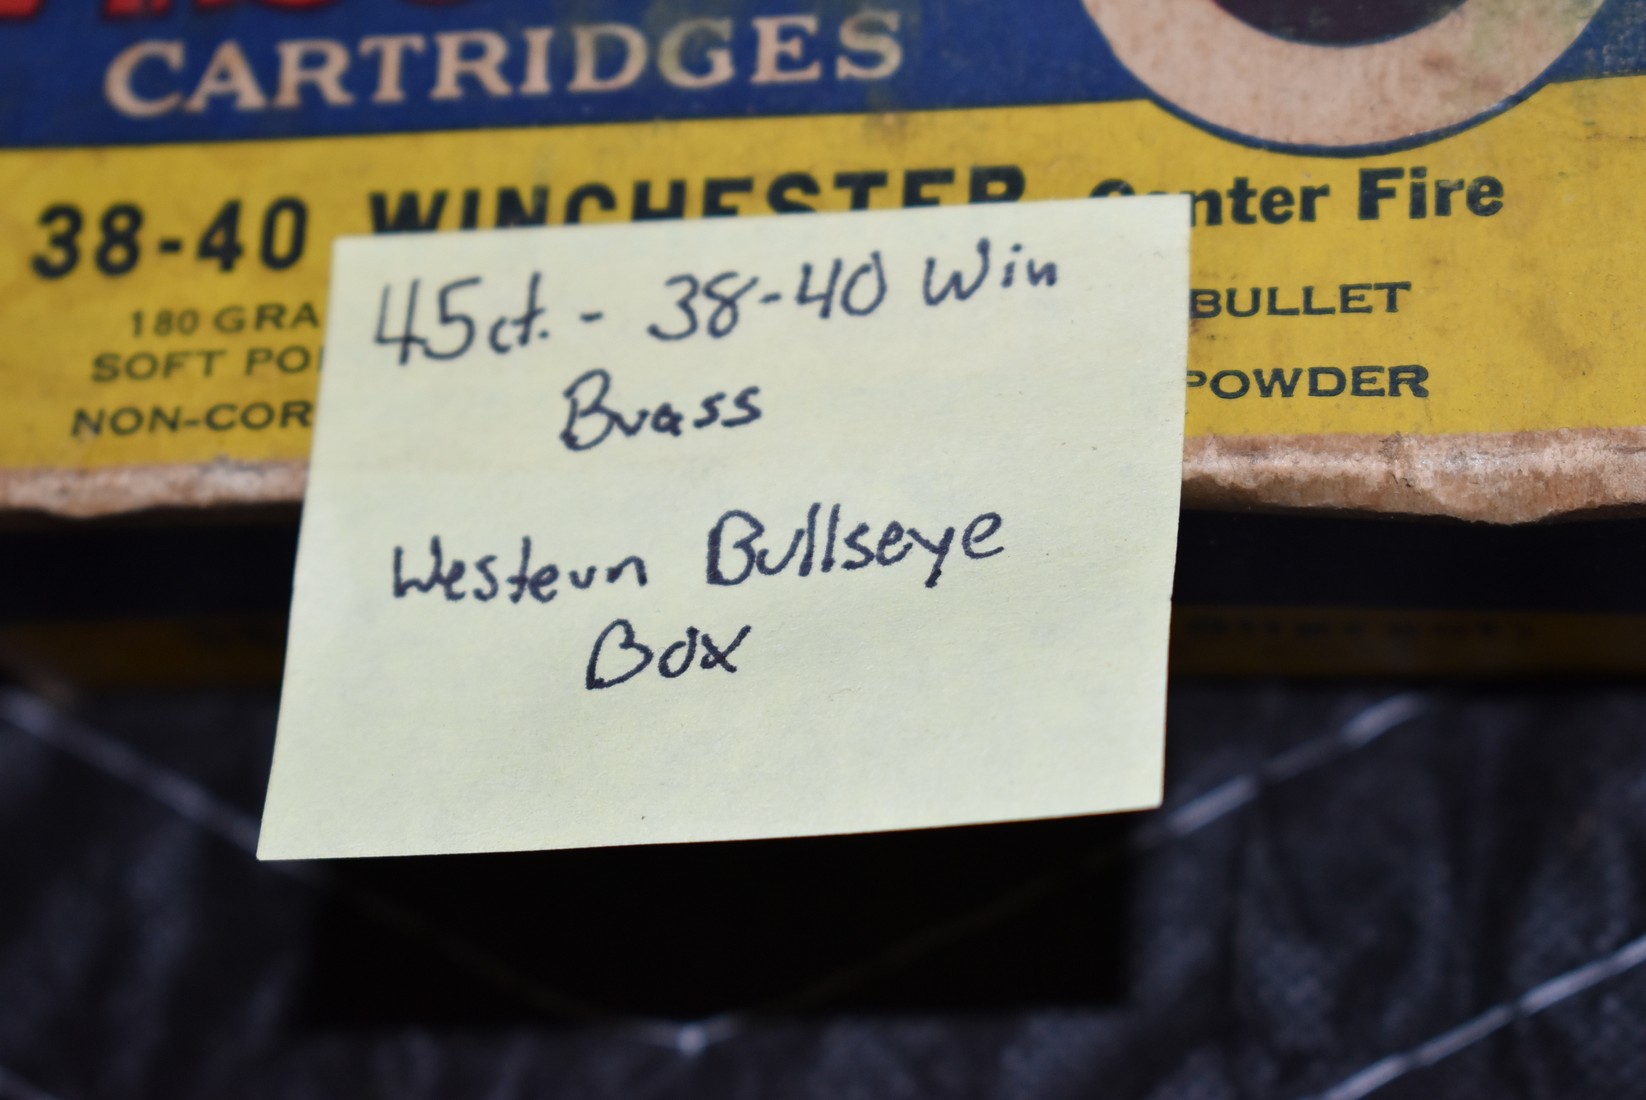 CARTRIDGES
38-40 WINCHESTER Center Fire
180 GRA BULLET
SOFT POI
NON-COR POWDER
45ct. - 38-40 Win
Brass
Western Bullseye
Box